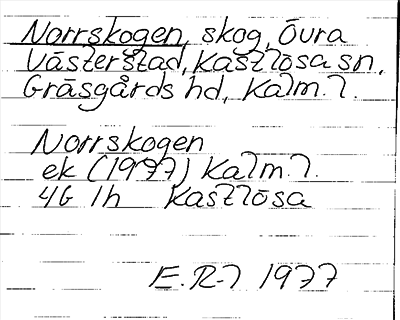 Norrskogen, skog, Övra
Västerstad, Kastlösa sn,
Gräsgårds hd, Kalm. l.
Norrskogen
ek (1977) Kalm. l.
4G 1h Kastlösa
E.R-l 1977